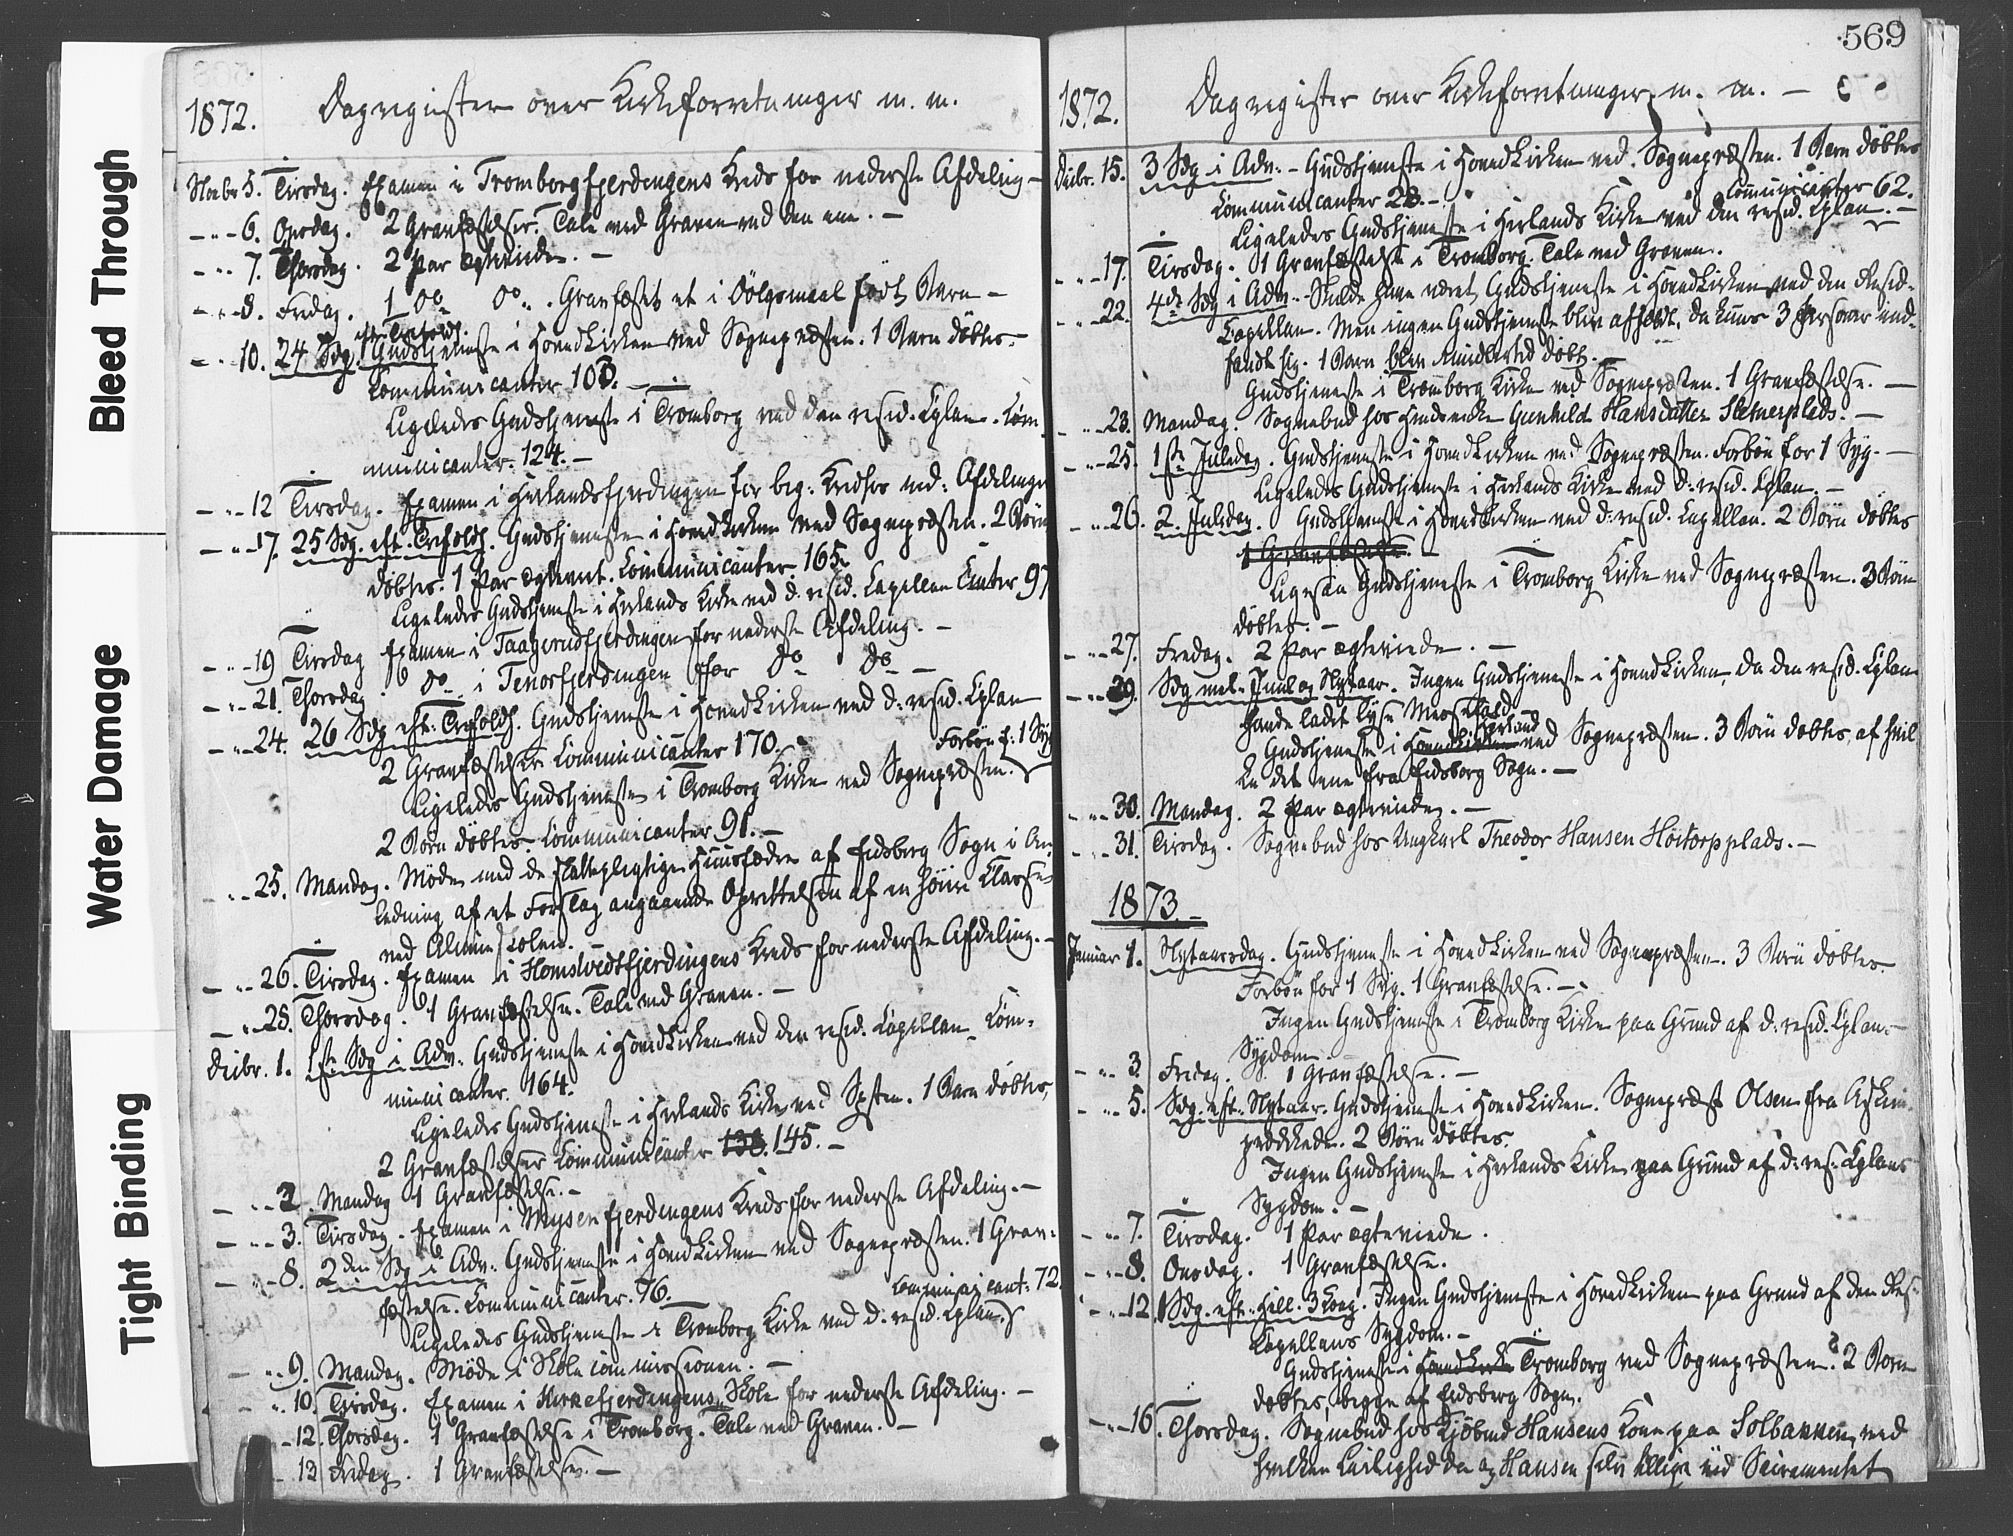 Bleed Through
Water Damage
Tight Binding
1872. Dagregister over Kirkeforretninger m. m.
Novbr 5. Tirsdag. Examen i Tromborgfjerdingens Kreds for nederste Afdeling –
– „ – 6. Onsdag. 2 Gravfæstelser. Tale ved Graven ved den ene. –
– „ – 7. Thorsdag. 2 Par ægteviede. –
– „ – 8. Fredag. 1 do do „. Gravfæstet et i Dölgsmaal født Barn –
eft. Trefoldh.
– „ – 10. 24 Sdg. Gudstjeneste i Hovedkirken ved Sognepræsten. 1 Barn döbtes. –
Communicanter 100. –
Ligeledes Gudstjeneste i Tromborg ved den resid. Cplan. Com-
municanter. 124. –
– „ – 12 Tirsdag. Examen i Herlandsfjerdingen for beg: Kredses ned: Afdelinger
– „ – 17. 25 Sdg. eft. Trefoldh. Gudstjeneste i Hovedkirken ved Sognepræsten. 2 Börn
döbtes. 1 Par ægteviet. Communicanter 165.
Ligeledes Gudstjeneste i Herlands Kirke ved d. resid. Capellan Canter 97
– „ – 19 Tirsdag Examen i Taagerudfjerdingen for nederste Afdeling. –
– „ – 21. Thorsdag. do i Tenorfjerdingen for do do –
– „ – 24. 26 Sdg eft. Trefoldh. Gudstjeneste i Hovedkirken ved d. resid. Cplan
2 Gravfæstelser Communicanter 170. Forbön f: 1 Syg
Ligeledes Gudstjeneste i Tromborg Kirke ved Sognepræsten.
2 Börn döbtes Communicanter 91. –
– „ – 25. Mandag. Möde med de skattepligtige Huusfædre af Eidsberg Sogn i An-
ledning af et Forslag angaaende Oprettelsen af en höiere Klasse
ved Almueskolen.
– „ – 26. Tirsdag. Examen i Homstvedtfjerdingens Kreds for nederste Afdeling. –
– „ – 28. Thorsdag. 1 Gravfæstelse. Tale ved Graven. –
Decbr. 1. 1ste Sdg i Adv. Gudstjeneste i Hovedkirken ved den resid. Capellan Com-
municanter. 164.
Ligeledes Gudstjeneste i Herlands Kirke ved Spsten. 1 Barn döbtes,
2 Gravfæstelser Communicanter 138. 145. –
– „ – 2. Mandag 1 Gravfæstelse. –
– „ – 3. Tirsdag. Examen i Mysenfjerdingens Kreds for nederste Afdeling. –
– „ – 8. 2den Sdg i Adv. Gudstjeneste i Hovedkirken ved Sognepræsten. 1 Grav-
fæstelse. Communicanter. 76. Communicant: 72.
Ligeledes Gudstjeneste i Tromborg Kirke ved d. resid. Cplan.
– „ – 9. Mandag. Möde i Skolecommissionen. –
„ 10. Tirsdag. Examen i Kirkefjerdingens Skole for nederste Afdeling. –
– 12. Thorsdag. 1 Gravfæstelse i Tromborg. Tale ved Graven. –
– 13 Fredag. 1 Gravfæstelse. –
569
1872. Dagregister over Kirkeforretninger m. m. –
Decbr. 15. 3 Sdg i Adv. – Gudstjeneste i Hovedkirken ved Sognepræsten. 1 Barn döbtes
Communicanter 28. – Communicanter 62.
Ligeledes Gudstjeneste i Herlands Kirke ved den resid. Cplan. –
– „ – 17. Tirsdag. 1 Gravfæstelse i Tromborg. Tale ved Graven.
– „ – 22. 4de Sdg i Adv. – Skulde have været Gudstjeneste i Hovedkirken ved den Resid-
Capellan. Men ingen Gudstjeneste blev afholdt, da kuns 3 Personer ind-
fandt sig. 1 Barn blev imidlertid döbt. –
Gudstjeneste i Tromborg Kirke ved Sognepræsten. 1 Gravfæstelse. –
– „ – 23. Mandag. Sognebud hos Gunhild Hansdatter Stenerplads. –
– „ – 25. 1ste Juledag. Gudstjeneste i Hovedkirken ved Sognepræsten. Forbön for 1 Syg. –
Ligeledes Gudstjeneste i Herlands Kirke ved d. resid. Cplan. –
– „ – 26. 2. Juledag. Gudstjeneste i Hovedkirken ved d. resid. Capellan. 2 Börn döbtes
1 Gravfæstelse
Ligesaa Gudstjeneste i Tromborg Kirke ved Sognepræsten. 3 Börn
döbtes. –
– „ – 27. Fredag. 2 Par ægteviede. –
– „ – 29. Sdg mel. Juul og Nytaar. Ingen Gudstjeneste i Hovedkirken da den resid. Cplan
havde ladet lyse Messefald
Herland
Gudstjeneste i Hovedkirken ved Sognepræsten. 3 Börn döbtes, af hvil-
ke det ene fra Eidsberg Sogn. –
– „ – 30. Mandag. 2 Par ægteviede. –
– „ – 31. Tirsdag. Sognebud hos Ungkarl Theodor Hansen Höitorpplads. –
1873. –
Januar 1. Nytaarsdag. Gudstjeneste i Hovedkirken ved Sognepræsten. 3 Börn döbtes.
Forbön for 1 Syg. 1 Gravfæstelse. –
Ingen Gudstjeneste i Tromborg Kirke paa Grund af d. resid. Cplans
Sygdom. –
– „ – 3. Fredag. 1 Gravfæstelse. –
– „ – 5. Sdg. eft. Nytaar. Gudstjeneste i Hovedkirken. Sognepræst Olsen fra Askim
prædikede. 2 Börn döbtes.
Ingen Gudstjeneste i Herlands Kirke paa Grund af d. res. Cplans
Sygdom. –
– „ 7. Tirsdag. 1 Par ægteviede.
– „ 8. Onsdag. 1 Gravfæstelse.
– „ – 12. 1 Sdg. eft. Hell. 3 Kong. Ingen Gudstjeneste i Hovedkirken paa Grund af den Res.
Capellans Sygdom. –
Gudstjeneste i Hovedkirke Tromborg ved Sognepræsten. 2 Börn
döbtes, begge af Eidsberg Sogn.
– „ – 16. Thorsdag. Sognebud hos Hansens Kone paa Solbakken, ved
hvilken Leilighed da og Hansen selv tillige nöd Sacramentet